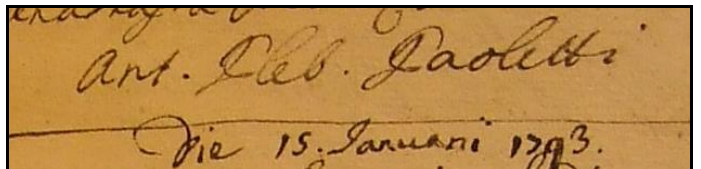 Ant. Pleb. Paoletti
Die 15. Januari 1793.